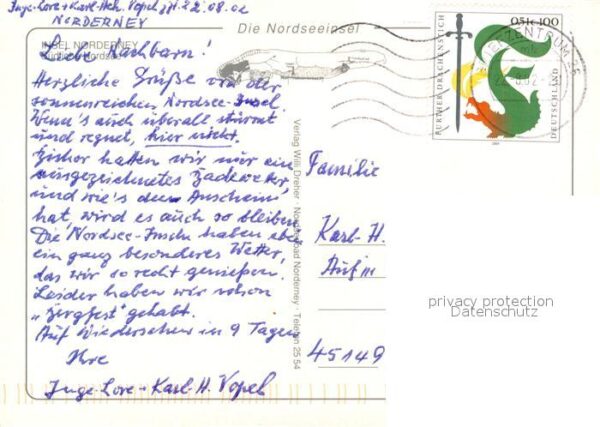 Inge-Lore + Karl-Hch. Vopel z.Zt. 22.08.02
NORDERNEY
Die Nordseeinsel
INSEL NORDERNEY
Liebe Nachbarn!
Herzliche Grüße von der
sonnenreichen Nordsee-Insel.
Wenn's auch überall stürmt
und regnet, hier nicht.
Bisher hatten wir nur ein
ausgezeichnetes Badewetter,
und wie's den Anschein
hat, wird es auch so bleiben.
Die Nordsee-Inseln haben eben
ein ganz besonderes Wetter,
das wir so recht genießen.
Leider haben wir schon
"Bergfest" gehabt.
Auf Wiedersehen in 9 Tagen
Ihre
Inge-Lore + Karl-H. Vopel
Verlag Willi Dreher · Nordseebad Norderney · Telefon 25 54
FURTHER DRACHENSTICH
0,51€ 1,00
DEUTSCHLAND
ZENTRUM 26
Familie
Karl-H.
Auf m
45149
privacy protection
Datenschutz